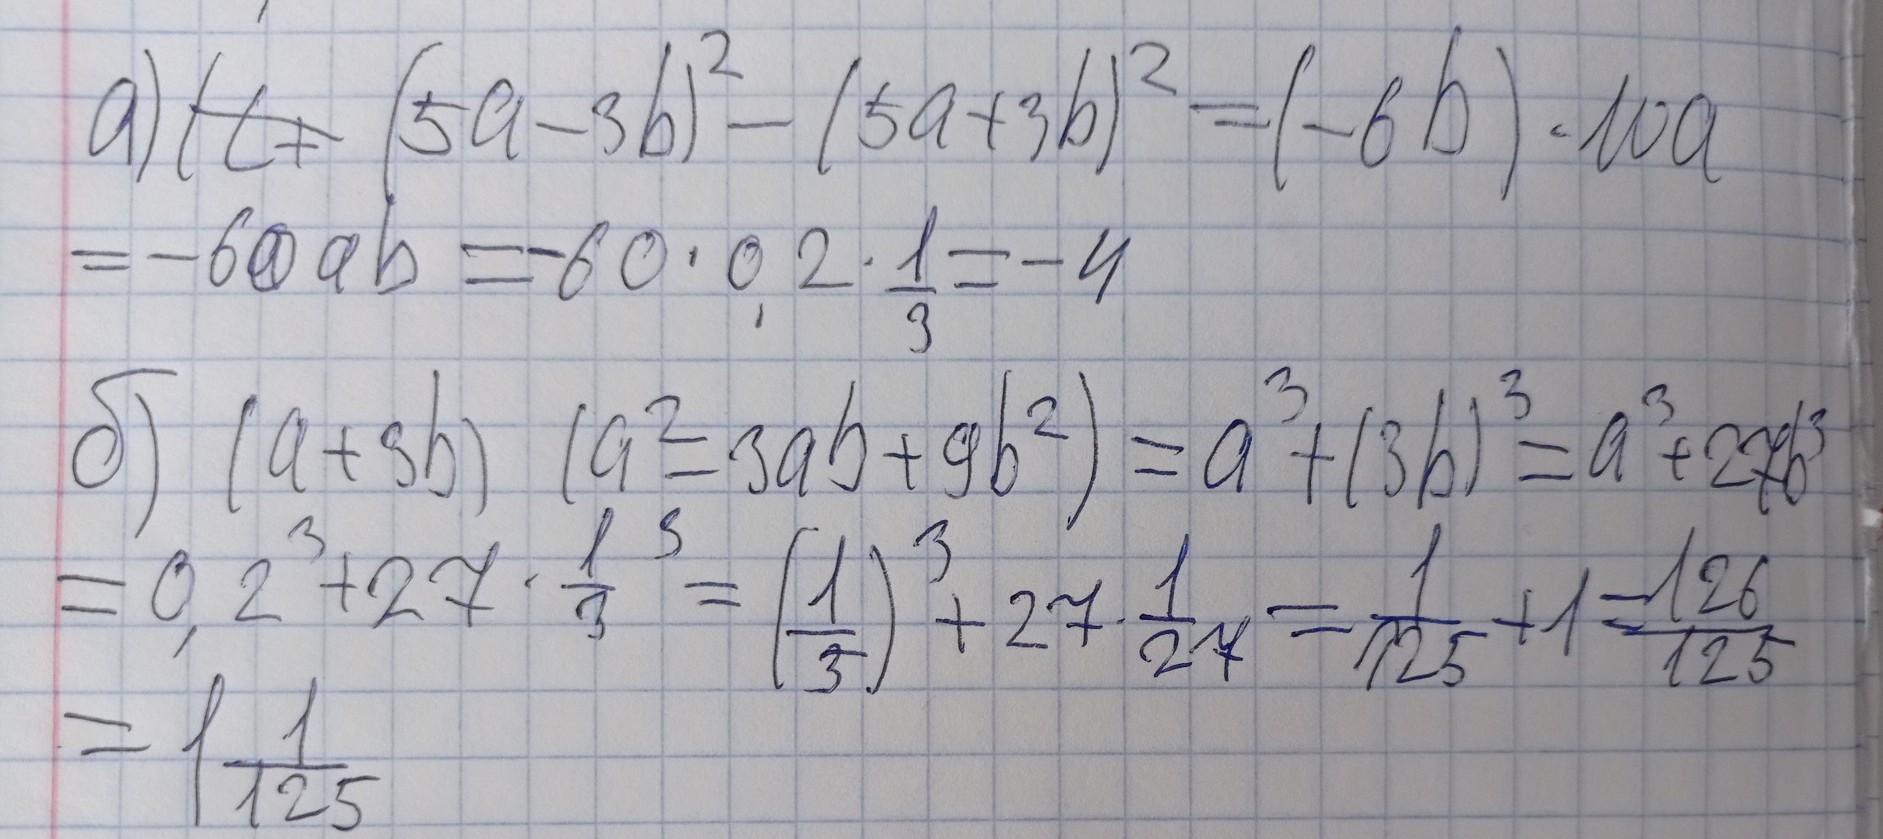 а) (5a-3b)² - (5a+3b)² = (-6b) · 10a
= -60ab = -60 · 0,2 · 1/3 = -4
б) (a+3b) (a²-3ab+9b²) = a³+(3b)³ = a³+27b³
= 0,2³+27 · 1/3³ = (1/5)³ + 27 · 1/27 = 1/125 + 1 = 126/125
= 1 1/125